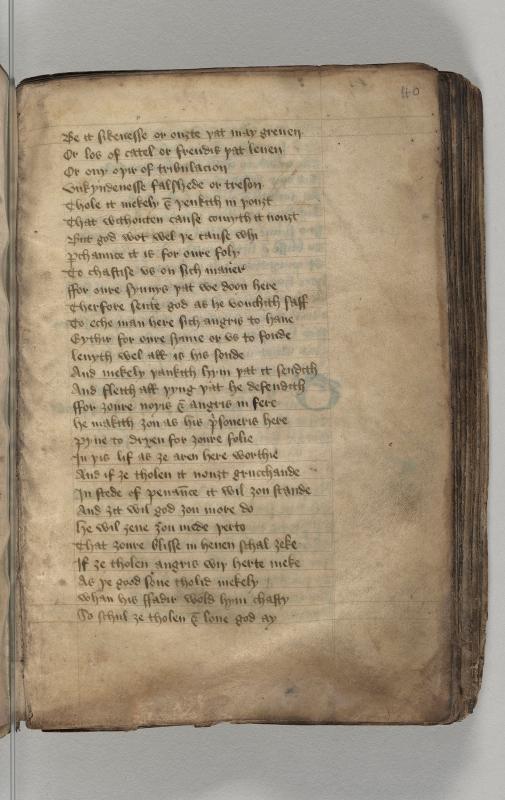 40
Be it sikenesse or ouzte þat may greuen
Or los of catel or frendis þat leuen
Or ony oþir of tribulacion
Vnkyndenesse falshede or treson
Thole it mekely & þenkith in þouzt
That withouten cause comyth it nouzt
But god wot wel þe cause whi
ꝑchaunce it is for oure foly
To chastise vs on sich maner
ffor oure synnys þat we doon here
Therfore sente god as he vouchith saff
To eche man here sich angris to haue
Eythir for oure synne or vs to fonde
leuyth wel all is his sonde
And mekely þankith hym þat it sendith
And fleith all þyng þat he defendith
ffor zoure noyis & angris in fere
he makith zou as his p̾soneris here
pyne to dryen for zoure folie
In þis lif as ze aren here worthie
And if ze tholen it nouzt grucchande
In stede of penance it wil zou stande
And zit wil god zou more do
he wil zeue zou mede þerto
That zoure blisse in heuen schal zeke
If ze tholen angris wiþ herte meke
As þe good sone tholid mekely
Whan his ffadir wold hym chasty
So schul ze tholen & loue god ay